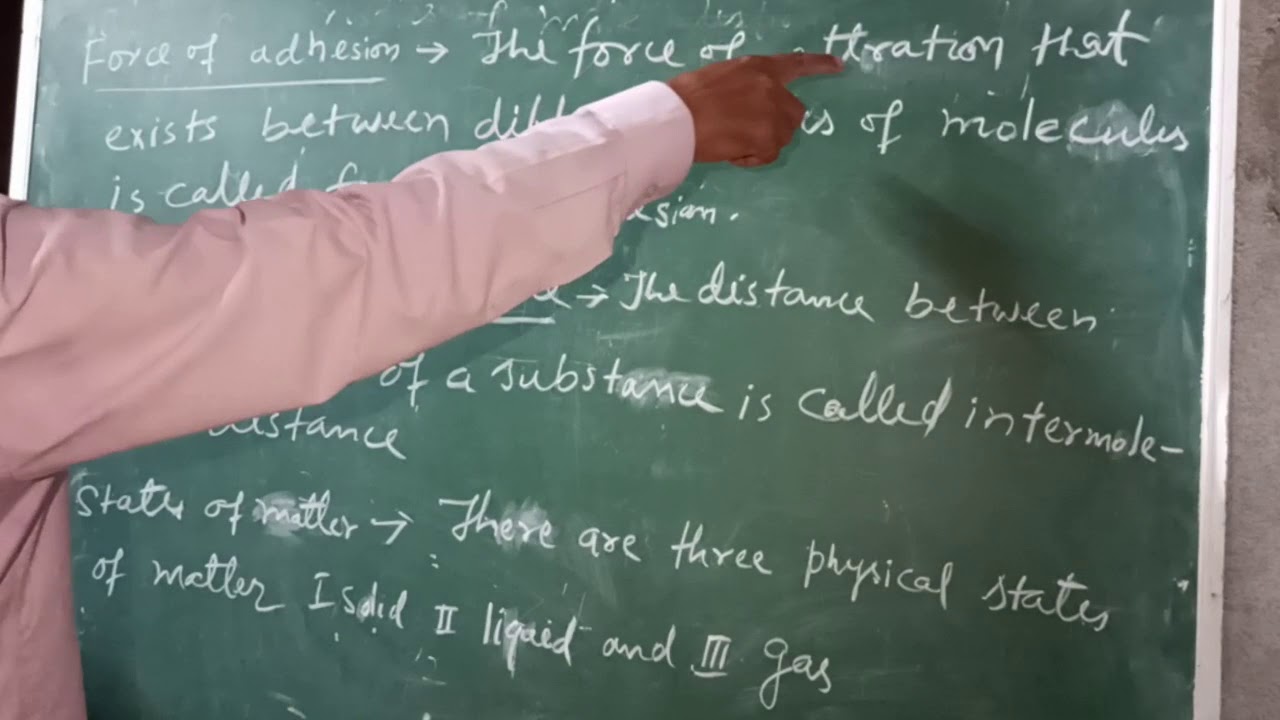 Force of adhesion → The force of ttration that
exists between of molecules
is called
→ The distance between
of a substance is called intermole-
distance
States of matter → There are three physical states
of matter I solid II liquid and III gas